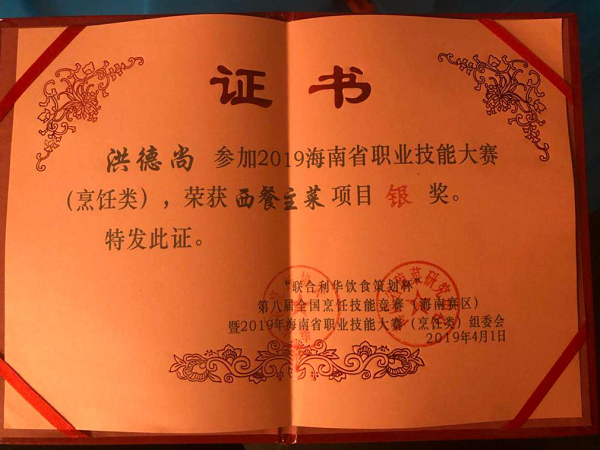 证书
洪德尚 参加2019海南省职业技能大赛
（烹饪类），荣获 西餐主菜 项目 银 奖。
特发此证。
“联合利华饮食策划杯”
第八届全国烹饪技能竞赛（海南赛区）
暨2019年海南省职业技能大赛（烹饪类）组委会
2019年4月1日